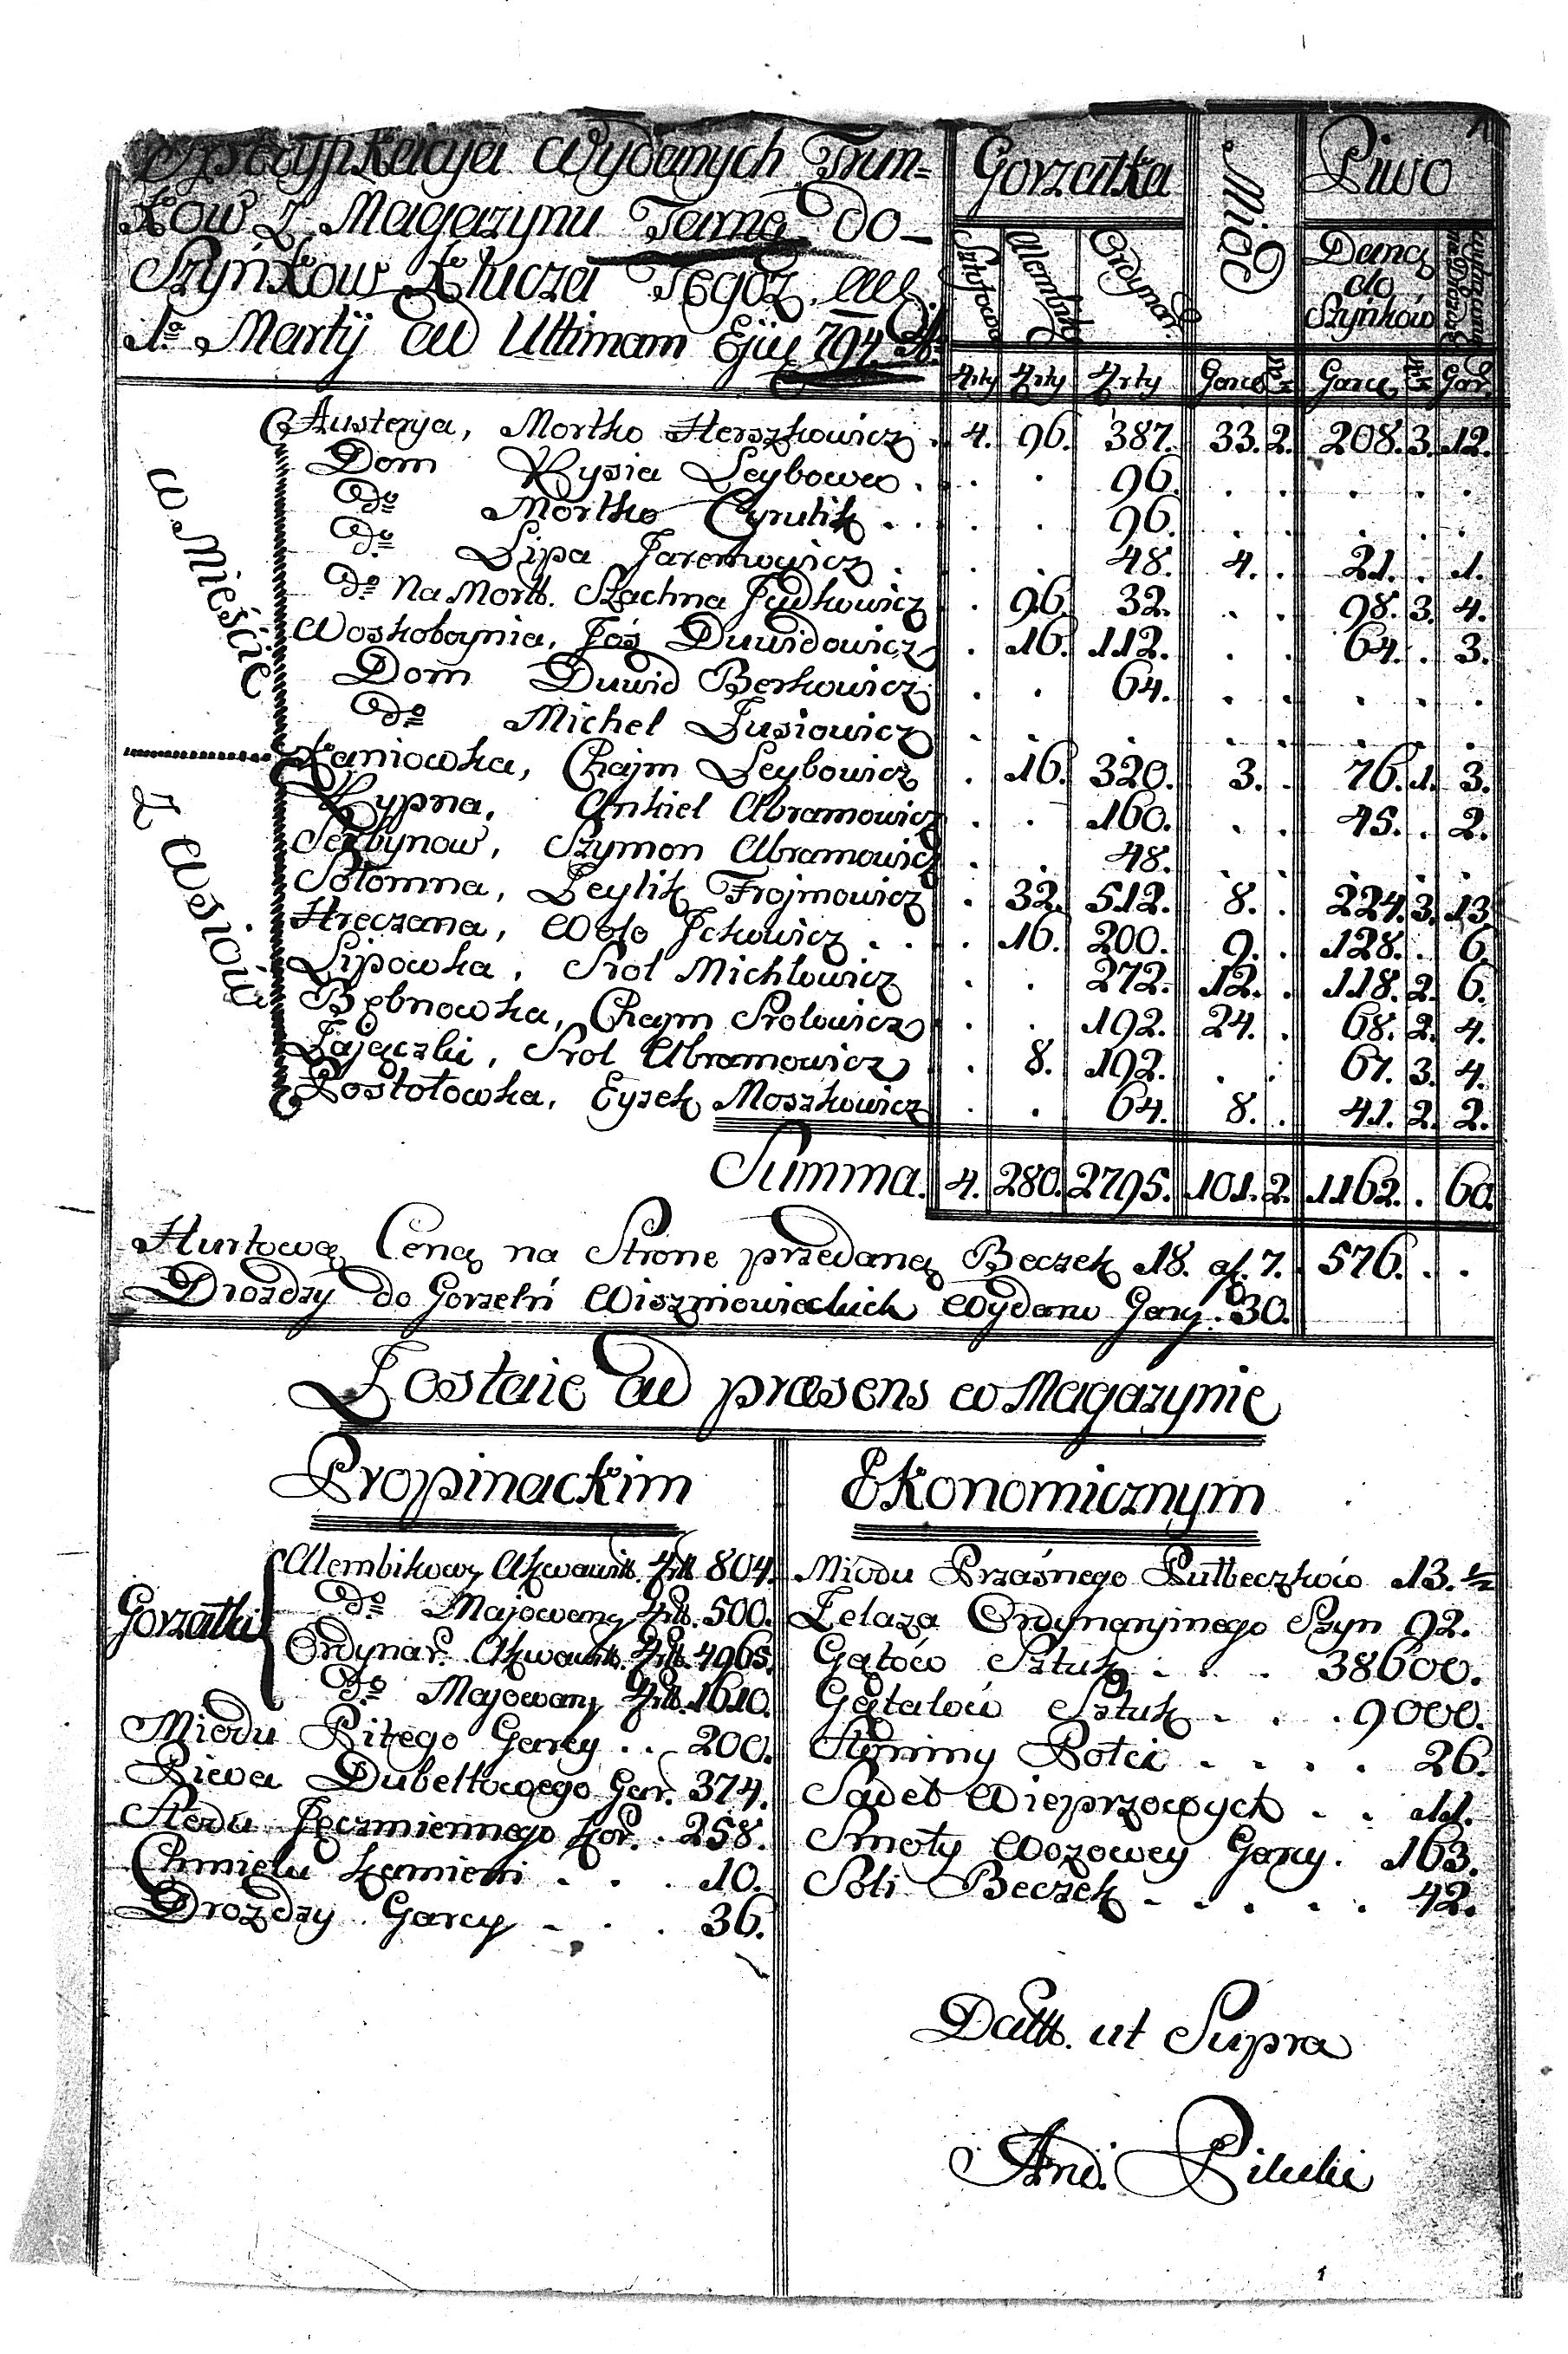 Specyfikacya Wydanych Trun=
kow z Magazynu Tarną do-
Szynkow Klucza Tegoż.
1ª Martij ad Ultimam Ejuς 794.
Gorzałka
Miod
Piwo
Sztofowa
Alembik
Ordynar.
Daną do Szynków
Arty Arty Arty Garce Garcę Gar.
w Mieście
Austerya, Mortko Herszkowicz . 4. 96. 387. 33. 2. 208. 3. 12.
Dom Rysia Leybowa . . . 96. . . . . .
do Mortko Cyrulik . . . . 96. . . . . .
do Lipa Jaremowicz . . . 48. 4. . 21. . 1.
do Na Mortk. Szachna Judkowicz . 96. 32. . . 98. 3. 4.
Woskoboynia, Joś Duwidowicz . 16. 112. . . 64. . 3.
Dom Duwid Berkowicz . . 64. . . . . .
do Michel Jusiowicz . . . . . . . .
z Wsiów
Kaniowka, Chajm Leybowicz . 16. 320. 3. . 76. 1. 3.
Rypna, Ankiel Abramowicz . . 160. . . 45. . 2.
Serbynow, Szymon Abramowicz . . 48. . . . . .
Sołomna, Leylik Frojmowicz . 32. 512. 8. . 224. 3. 13
Hreczana, Wolo Jckowicz . . . 16. 200. 9. . 128. . 6.
Lipowka, Srol Michlowicz . . 272. 12. . 118. 2. 6.
Bębnowka, Chaym Srolowicz . . 192. 24. . 68. 2. 4.
Zajączki, Srol Abramowicz . 8. 192. . . 67. 3. 4.
Postołowka, Eysek Moszkowicz . . 64. 8. . 41. 2. 2.
Summa. 4. 280. 2795. 101. 2. 1162. . 60.
Hurtową Ceną na Strone przedaną Beczek 18. af. 7. 576. . .
Drożdzy do Gorzelń Wiszniowieckich Wydano Garcy. 30.
Zostaie ad præsens w Magazynie
Propinackim
Gorzałki
Alembikowy Akwawit. 804.
do Majowany 500.
Ordynar. Akwawit. 4965.
do Majowany 1610.
Miodu Pitego Garcy . . 200.
Piwa Dubeltowego Gar. 374.
Słodu Jęczmiennego Kor. . 258.
Chmielu kamieni . . . 10.
Drożdzy Garcy - . . 36.
Ekonomicznym
Miodu Przaśnego Pułbeczków 13. ½
Żelaza Ordynaryinego Szyn 92.
Gątów Sztuk . . . 38600.
Gątalów Sztuk - . . 9000.
Słoniny Połci . . . . 26.
Sadeł Wieprzowych . . 11.
Smoły Wozowey Garcy. 163.
Soli Beczek - . . . . 42.
Datt. ut Supra
And. Pilulki